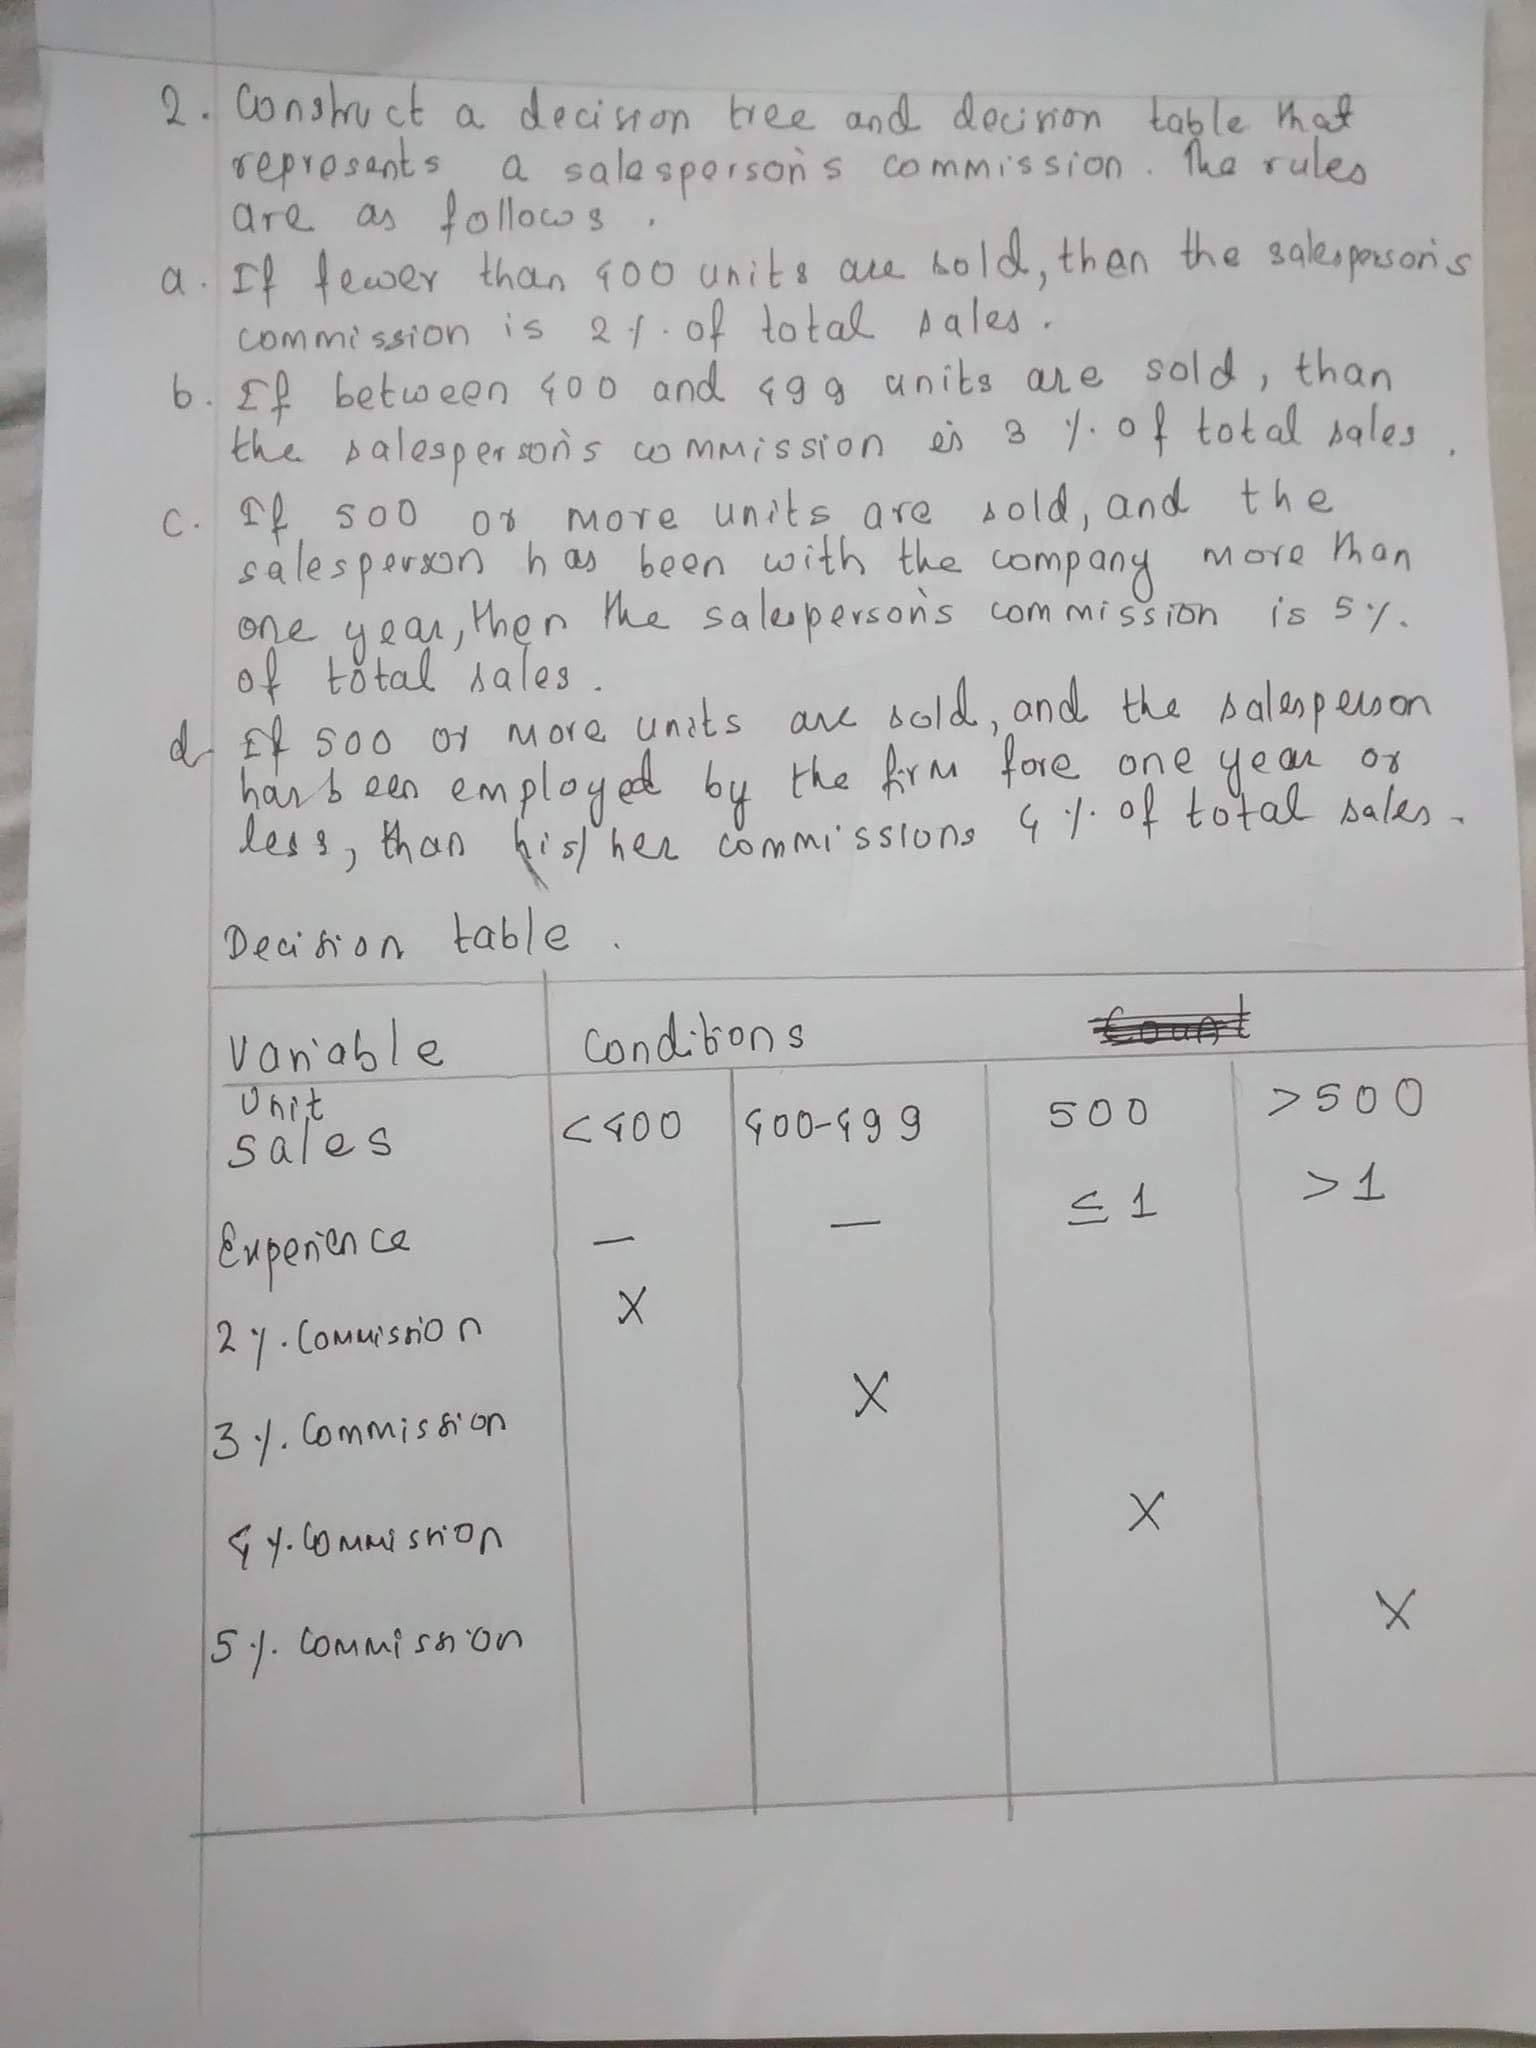 2. Construct a decision tree and decision table that
represents a salesperson's commission. The rules
are as follows.
a. If fewer than 400 units are sold, then the salesperson's
commission is 2% of total sales.
b. If between 400 and 499 units are sold, than
the salesperson's commission is 3 % of total sales.
c. If 500 or more units are sold, and the
salesperson has been with the company more than
one year, then the salesperson's commission is 5%.
of total sales.
d. If 500 or more units are sold, and the salesperson
has been employed by the firm fore one year or
less, than his/her commissions 4 % of total sales.
Decision table.
Variable Conditions Count
Unit
Sales <400 400-499 500 >500
Experience — — ≤1 >1
2% Commission X
3% Commission X
4% Commission X
5% Commission X